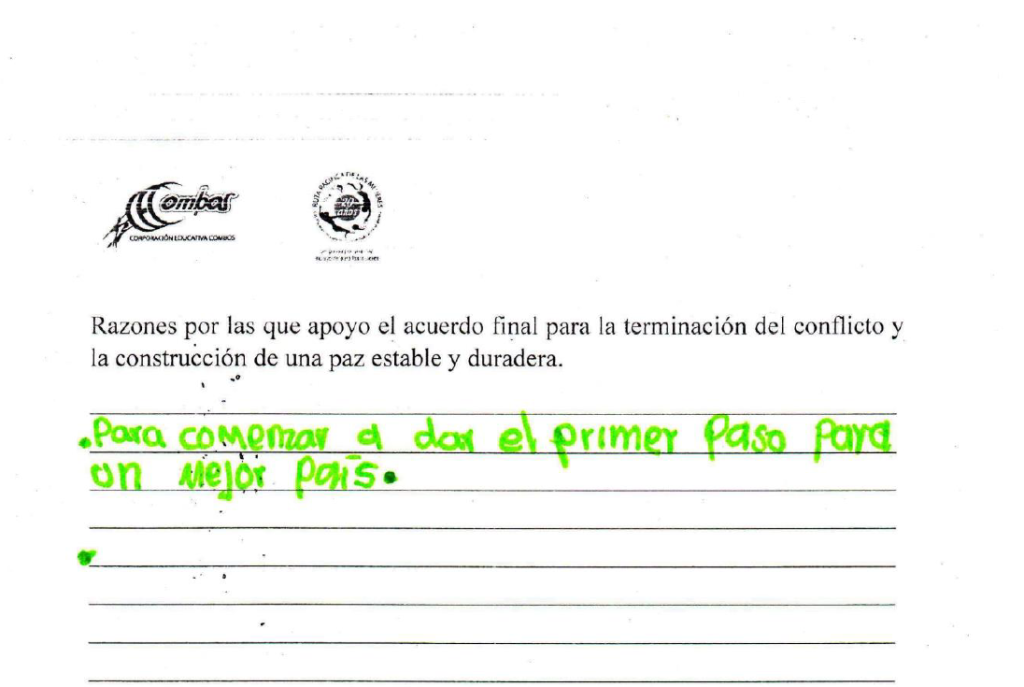 ombos
CORPORACIÓN EDUCATIVA COMBOS
RUTA PACÍFICA DE LAS MUJERES
Razones por las que apoyo el acuerdo final para la terminación del conflicto y
la construcción de una paz estable y duradera.
.Para comenzar a dar el primer Paso Para
un Mejor País.